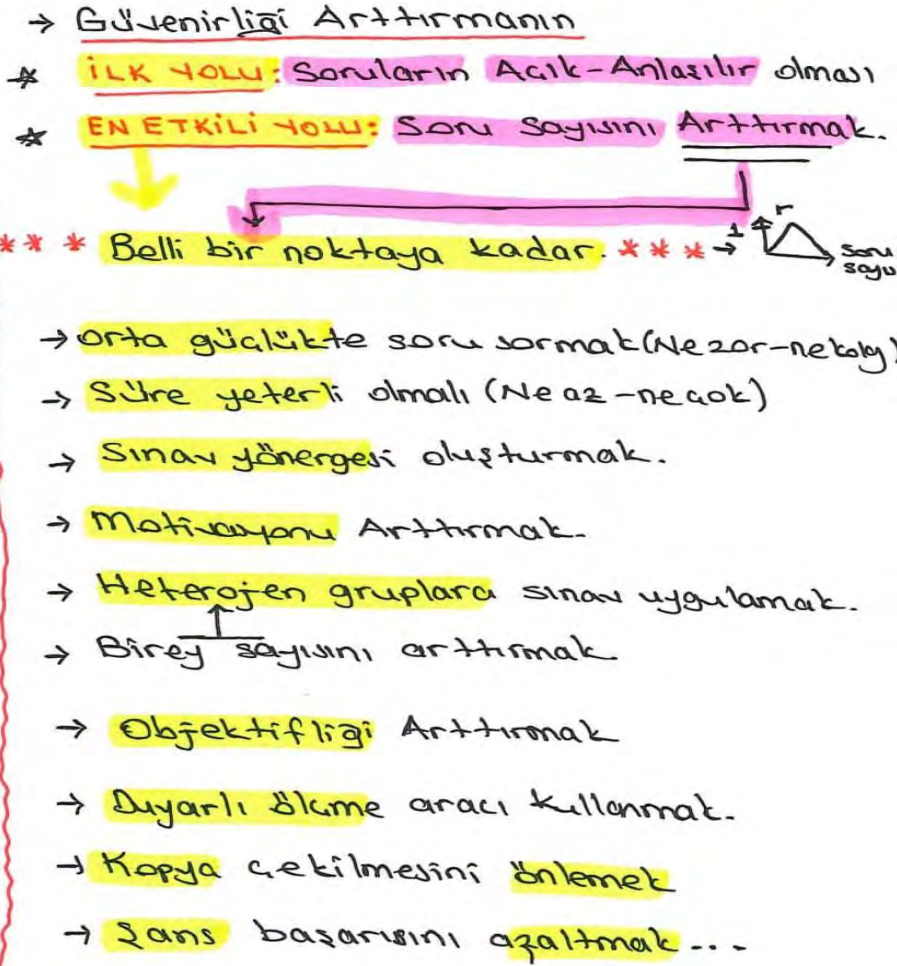 → Güvenirliği Arttırmanın
* İLK YOLU: Soruların Açık-Anlaşılır olması
* EN ETKİLİ YOLU: Soru Sayısını Arttırmak.
*** Belli bir noktaya kadar. *** → 1 r
soru
sayısı
→ orta güçlükte soru sormak (Ne zor-ne kolay)
→ Süre yeterli olmalı (Ne az-ne çok)
→ Sınav yönergesi oluşturmak.
→ Motivasyonu Arttırmak.
→ Heterojen gruplara sınav uygulamak.
→ Birey sayısını arttırmak
→ Objektifliği Arttırmak
→ Duyarlı ölçme aracı kullanmak.
→ Kopya çekilmesini önlemek
→ Şans başarısını azaltmak...